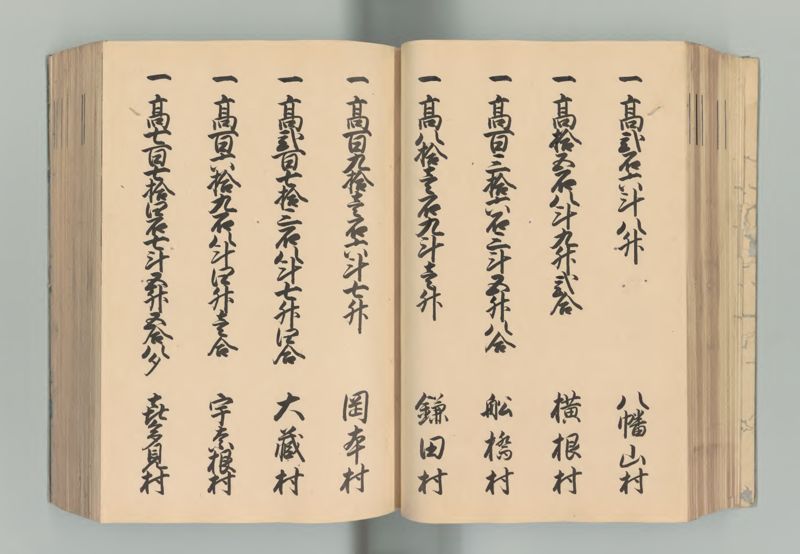 一 高弐石六斗八升 八幡山村
一 高拾五石八斗九升弐合 横根村
一 高百三拾六石三斗五升八合 船橋村
一 高八拾壱石九斗壱升 鎌田村
一 高百九拾壱石六斗七升 岡本村
一 高弐百七拾三石八斗七升四合 大蔵村
一 高百六拾九石八斗四升壱合 宇奈根村
一 高七百七拾四石七斗五升五合八夕 喜多見村